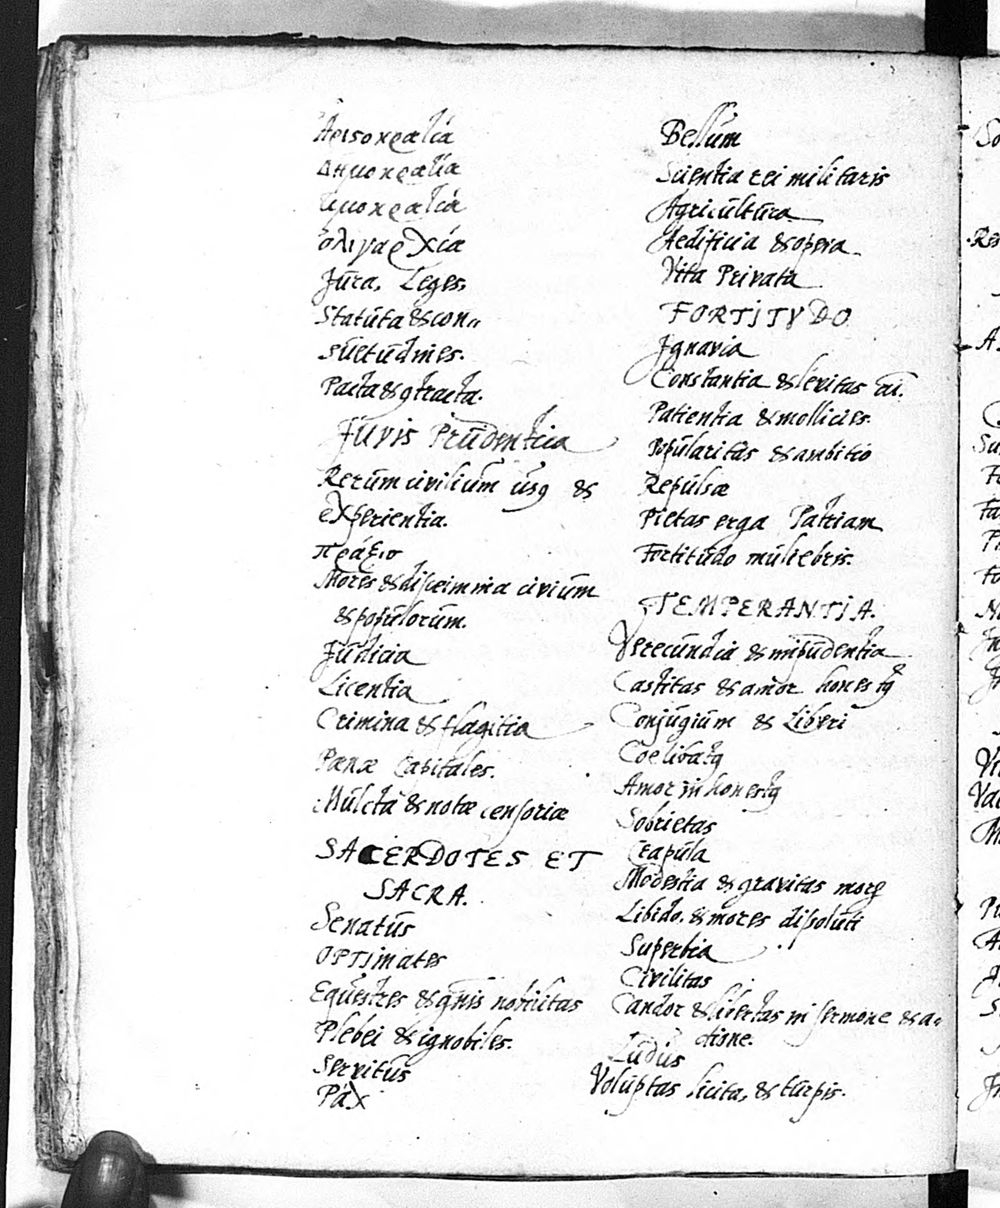 Ἀριϛοκρατία
Δημοκρατία
τιμοκρατία
ὀλιγαρχία
Jura, Leges,
Statuta & con„
suetudines.
Pacta & ꝯtracta.
Juris Prudentia
Rerum civilium usꝯ &
experientia.
πράξισ
Mores & discrimina civium
& populorum.
Judicia
Licentia
Crimina & flagitia
Pœnæ Capitales.
Mulcta & notæ censoriæ
SACERDOTES ET
SACRA.
Senatus
OPTimates
Equestres & gn̄is nobilitas
Plebei & ignobiles.
Servitus
Pax
Bellum
Scientia rei militaris
Agricultura
Aedificia & opera
Vita Privata
FORTJTVDO
Jgnavia
Constantia & levitas aī.
Patientia & mollicies.
Popularitas & ambitio
Repulsæ
Pietas erga Patriam
Fortitudo muliebris.
TEMPERANTJA.
Verecundia & impudentia
Castitas & amor honestꝯ
Conjugium & Liberi
Coelibatꝯ
Amor inhonestꝯ
Sobrietas
Crapula
Modestia & gravitas morꝝ
Libido. & mores dissoluti
Superbia
Civilitas
Candor & libertas in sermone & a„
ctione.
Ludus
Voluptas licita, & turpis.